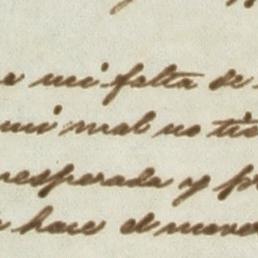 mi falta de
mi mal no tie
esperada y p
hace el mov